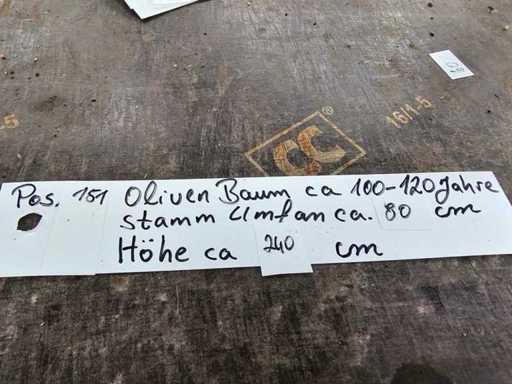 16/1-5
CC®
Pos. 151 Oliven Baum ca 100-120 Jahre
stamm Umfan ca. 80 cm
Höhe ca 240 cm